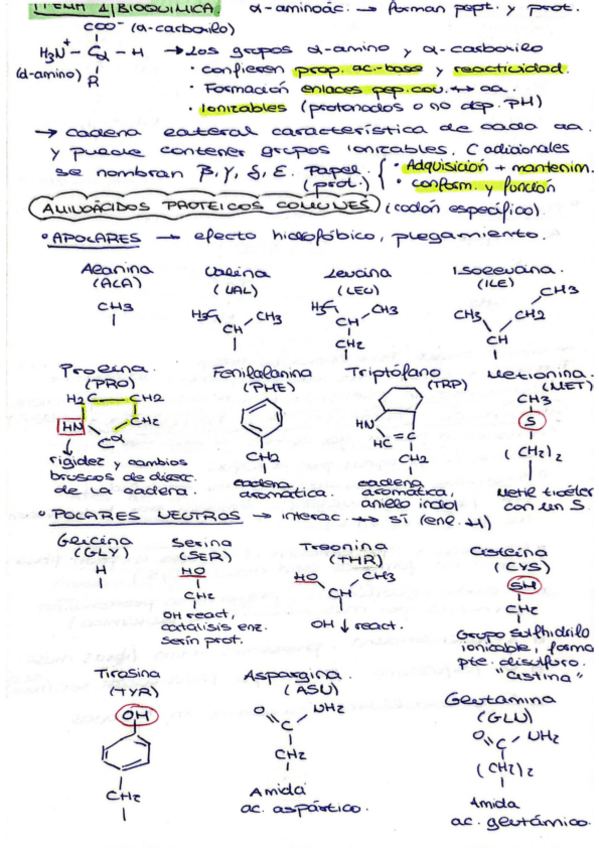 TEMA 1 BIOQUÍMICA α-aminoác. → forman pept. y prot.
COO⁻ (α-carboxilo)
H₃N⁺ - Cα - H → Los grupos α-amino y α-carboxilo
(α-amino) R · confieren prop. ac-base y reactividad.
· Formación enlaces pep. cov. ↔ aa.
· Ionizables (protonados o no dep. pH)
→ cadena lateral característica de cada aa.
y puede contener grupos ionizables. C adicionales
se nombran β, γ, δ, ε. Papel (prot.) { · Adquisición + mantenim.
· conform. y función
AMINOÁCIDOS PROTEICOS COMUNES (codón específico).
· APOLARES → efecto hidrofóbico, plegamiento.
Alanina Valina Leucina Isoleucina.
(ALA) (VAL) (LEU) (ILE)
CH3 H3C CH3 H3C CH3 CH3 CH2 CH3
CH CH CH
CH2
Prolina. Fenilalanina Triptófano Metionina.
(PRO) (PHE) (TRP) (MET)
H2C CH2 CH3
HN CH2 HN S
Cα HC=C (CH2)2
CH2 CH2
rigidez y cambios
bruscos de direcc.
de la cadena.
cadena
aromática.
cadena
aromática,
anillo indol
Metil tioéter
con un S.
· POLARES NEUTROS → interac. ↔ sí (enl. H)
Glicina Serina Treonina Cisteína
(GLY) (SER) (THR) (CYS)
H HO HO CH3 SH
CH2 CH CH2
OH react,
catálisis enz.
serín prot.
OH ↓ react.
Grupo sulfhidrilo
ionizable, forma
pte. disulfuro.
"cistina"
Tirosina Aspargina Glutamina
(TYR) (ASU) (GLU)
OH O NH2 O NH2
C C
CH2 CH2 (CH2)2
Amida
ac. aspártico.
Amida
ac. glutámico.